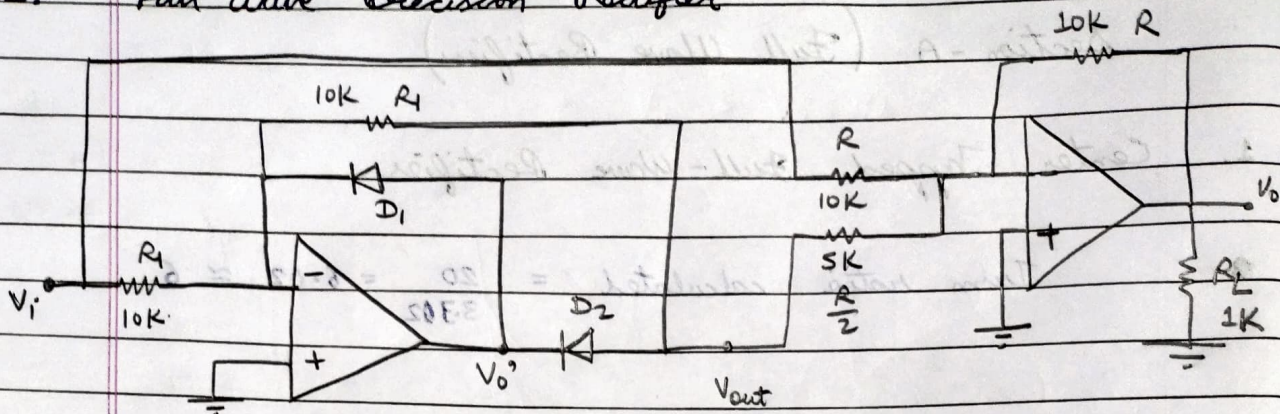 Full Wave Precision Rectifier
10K R
10K R1
R
10K
D1
5K
R/2
Vo
R1
10K
Vi
-
+
-
+
D2
Vo'
Vout
RL
1K